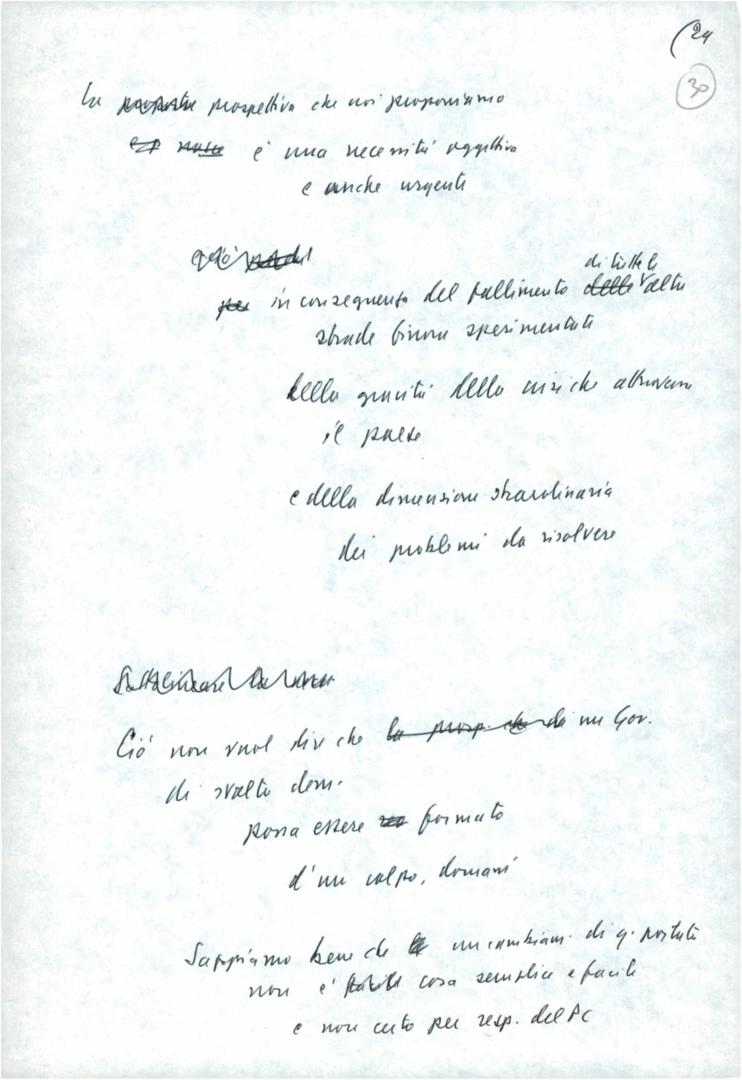 (24
30
La proposta prospettiva che noi proponiamo
è una necessità oggettiva
e anche urgente
di tutte le
per in conseguenza del fallimento delle altre
strade finora sperimentate
della gravità della crisi che attraversa
il paese
e della dimensione straordinaria
dei problemi da risolvere
Sottolineare
Ciò non vuol dire che la prosp. che di un Gov.
di svolta dem.
possa essere formato
d'un colpo, domani
Sappiamo bene che un cambiam. di q. portata
non è cosa semplice e facile
e non certo per resp. del PC